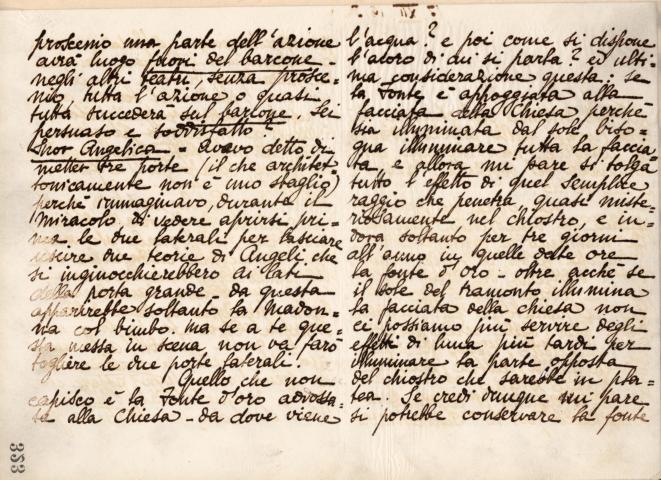 proscenio una parte dell'azione
avrà luogo fuori del barcone -
negli altri teatri, senza prosce=
nio, tutta l'azione o quasi
tutta succederà sul barcone. Sei
persuaso e soddisfatto?
Suor Angelica = Avevo detto di
metter tre porte (il che architet=
tonicamente non è uno sbaglio)
perchè immaginavo, durante il
Miracolo di vedere aprirsi pri=
ma le due laterali per lasciare
uscire due teorie di Angeli che
si inginocchierebbero ai lati
della porta grande - da questa
apparirebbe soltanto la Madon=
na col bimbo. ma se a te que=
sta messa in scena non va farò
togliere le due porte laterali.
Quello che non
capisco è la Fonte d'oro addossa=
ta alla Chiesa - da dove viene
l'acqua? e poi come si dispone
l'aloro di cui si parla? ed ulti=
ma considerazione questa: se
la Fonte è appoggiata alla
facciata della Chiesa perchè
sia illuminata dal sole biso=
gna illuminare tutta la faccia=
ta e allora mi pare si tolga
tutto l'effetto di quel semplice
raggio che penetra quasi miste=
riosamente nel chiostro e in=
dora soltanto per tre giorni
all'anno in quelle date ore
la fonte d'oro - oltre acchè se
il sole del tramonto illumina
la facciata della chiesa non
ci possiamo più servire degli
effetti di luna più tardi per
illuminare la parte opposta
del chiostro che sarebbe in pla=
tea. Se credi dunque mi pare
si potrebbe conservare la fonte
333